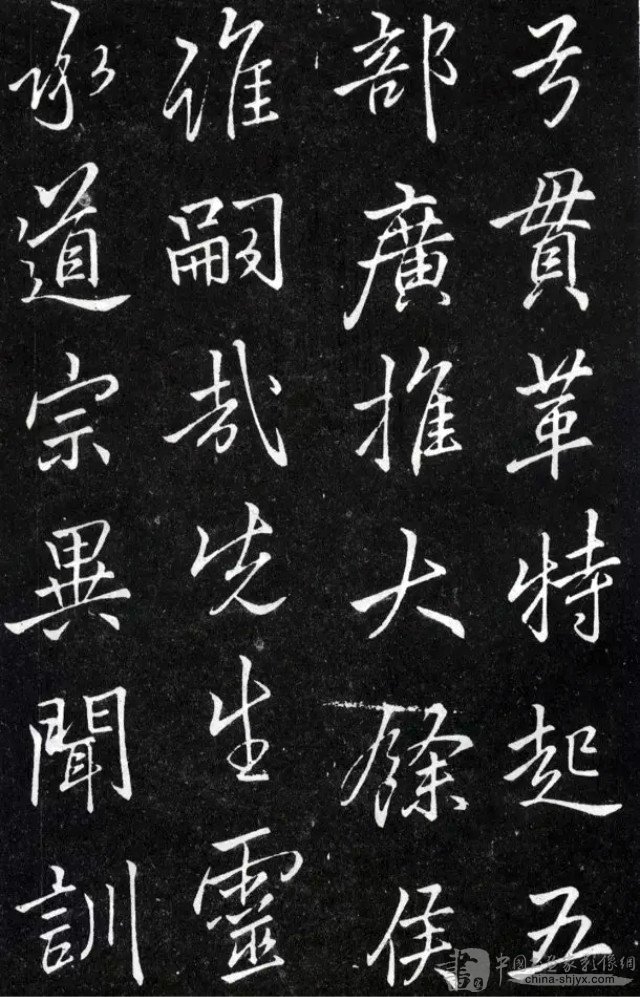 貫革特起五
部廣推大餘侯
誰嗣哉先生靈
承道宗異聞訓
china-shjyx.com